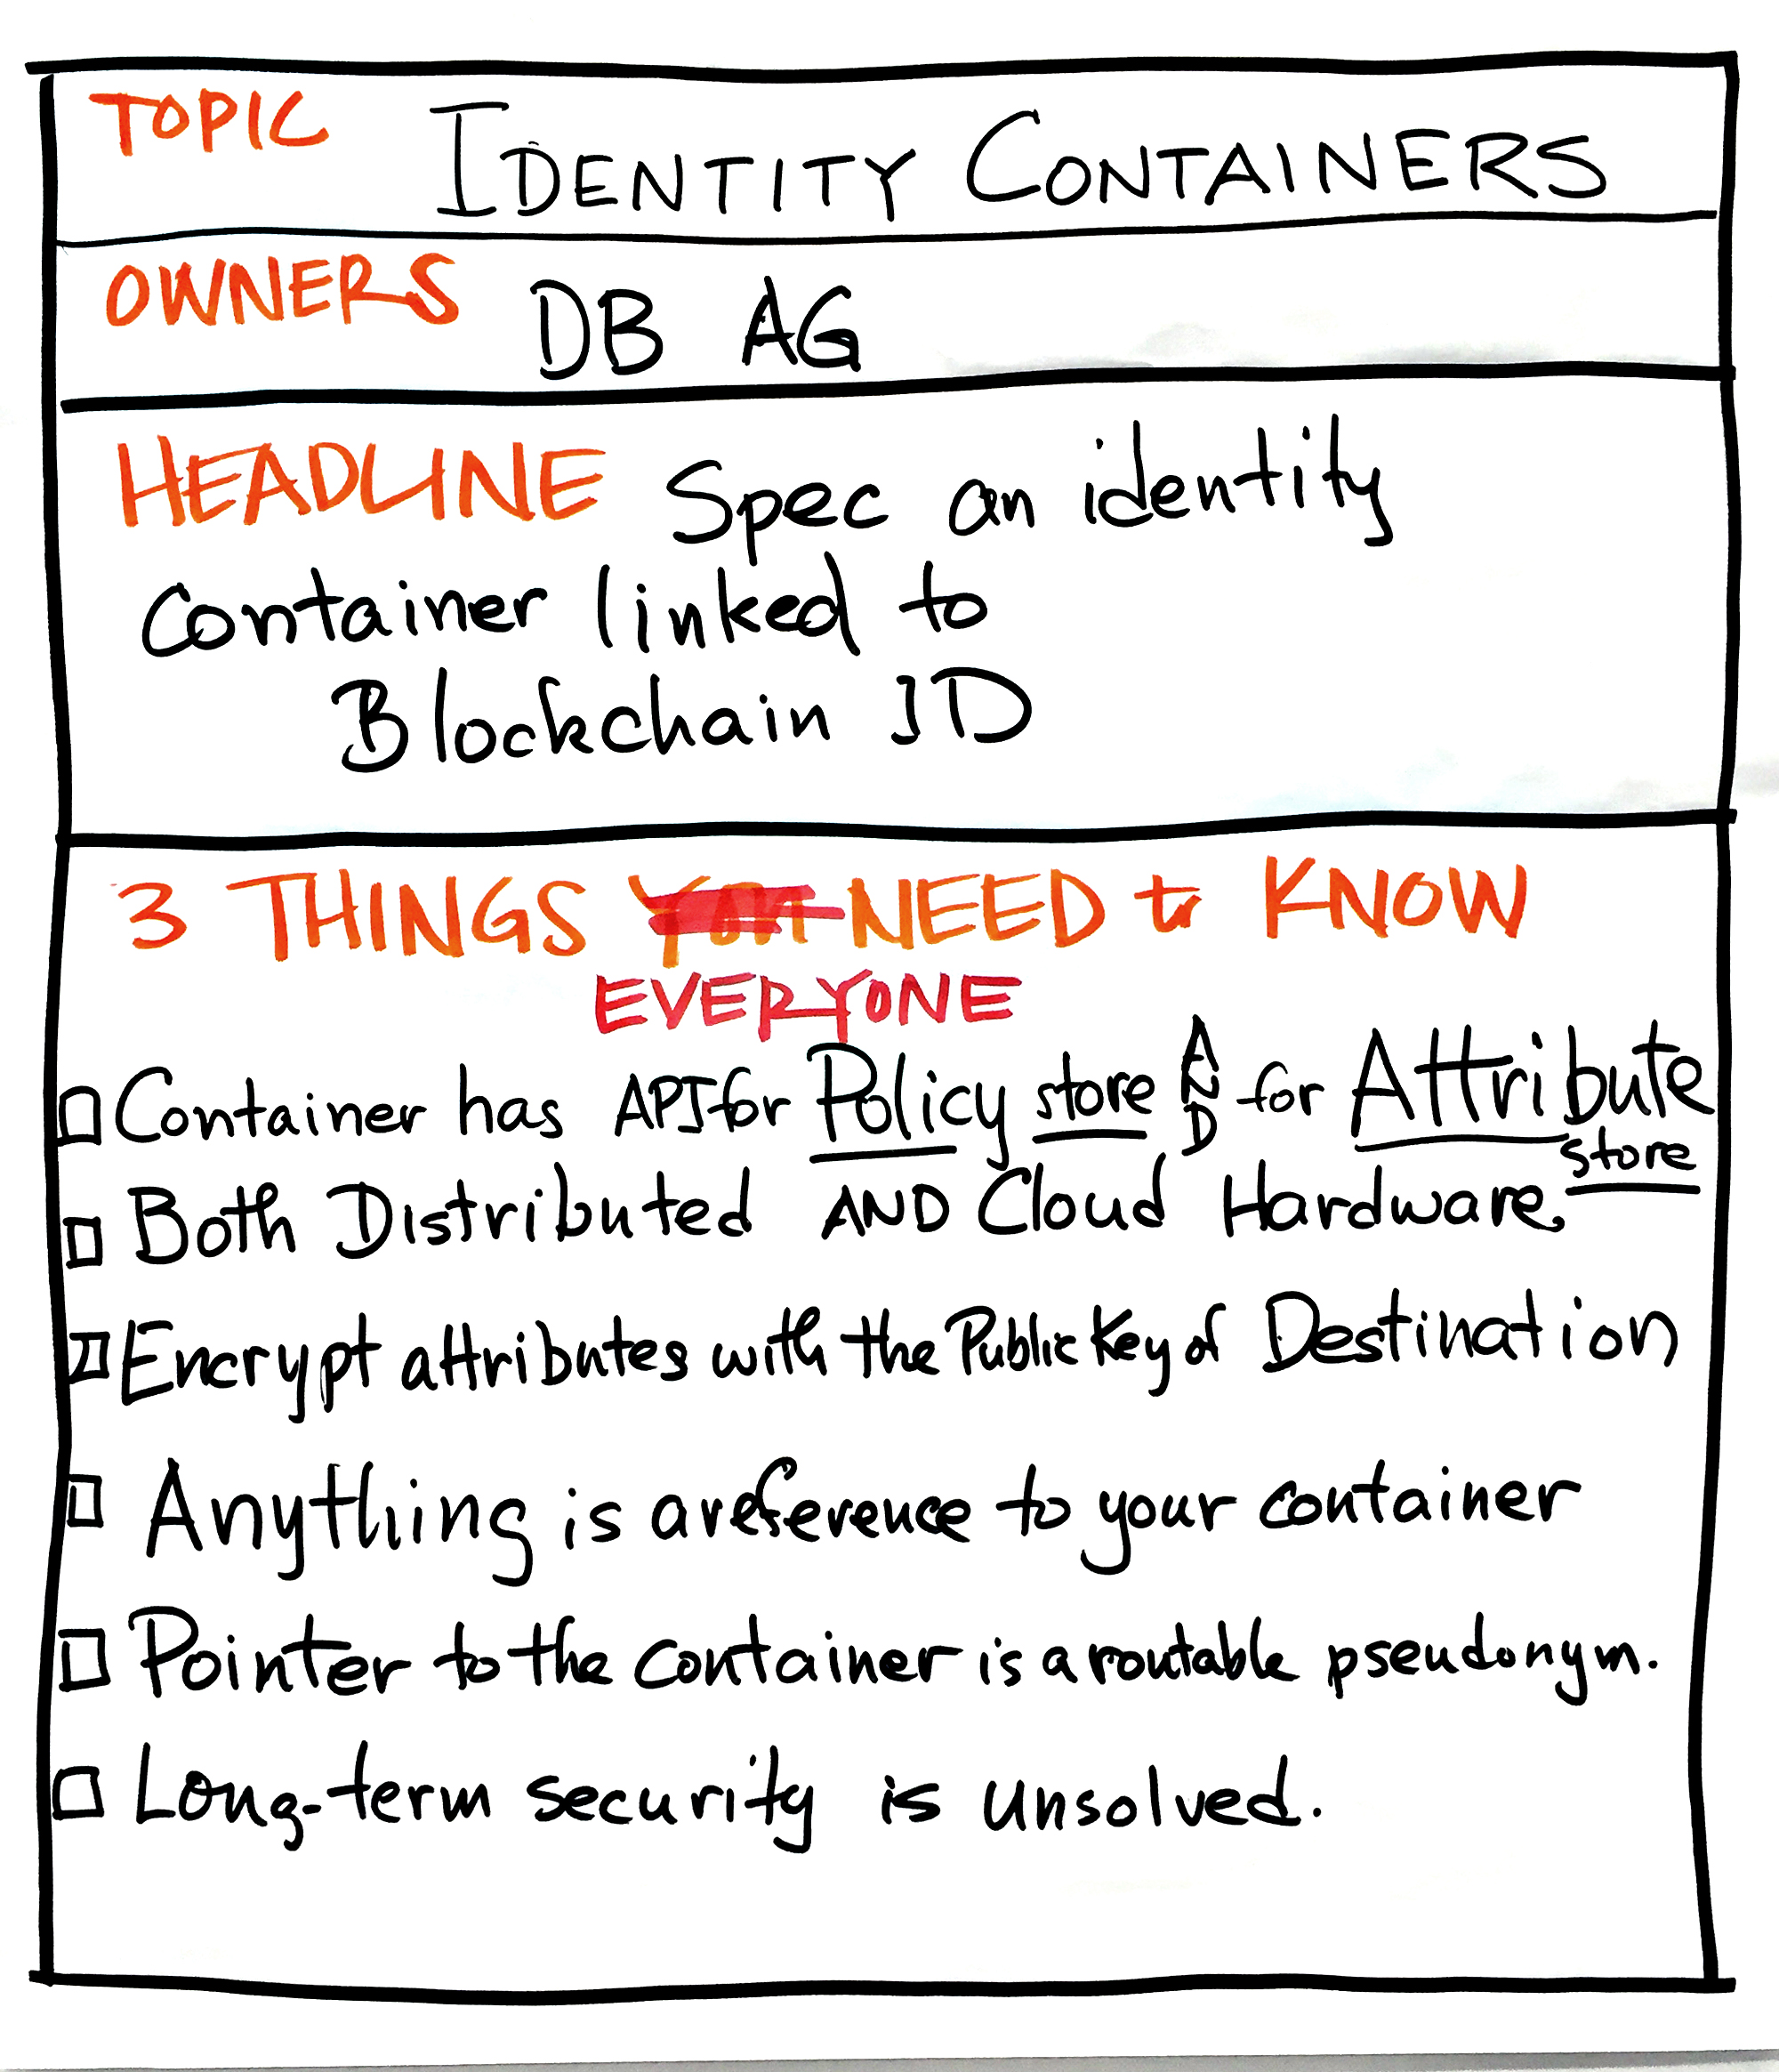 TOPIC IDENTITY CONTAINERS
OWNERS DB AG
HEADLINE Spec an identity
Container linked to
Blockchain ID
3 THINGS YOU NEED to KNOW
EVERYONE
Container has API for Policy store AND for Attribute
store
Both Distributed AND Cloud Hardware.
Encrypt attributes with the Public Key of Destination
Anything is a reference to your container
Pointer to the container is a routable pseudonym.
Long-term security is unsolved.